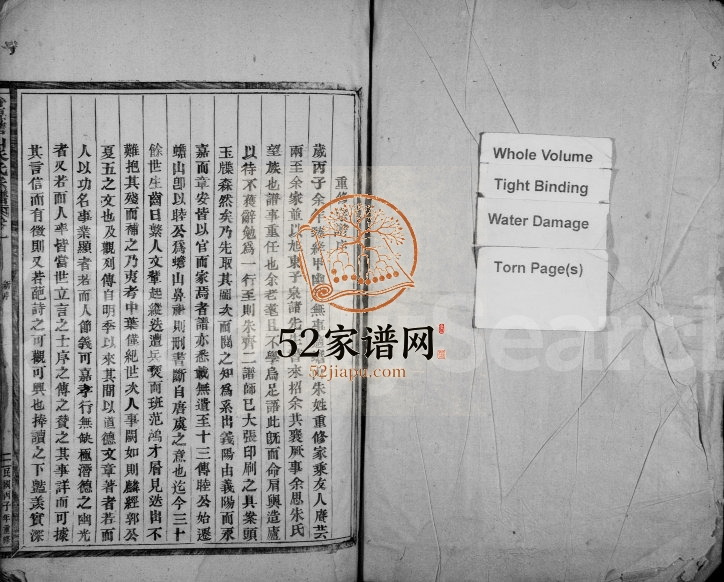 重修
歲丙子余 朱姓重修家乘友人
兩至余家並以 來招余共襄厥事余思朱氏
望族也譜事重任也余老耄且不學烏足語此旣而命肩輿造廬
以待不獲辭勉爲一行至則朱齊二譜師已大張印刷之具案頭
玉牒森然矣乃先取其圖次而閱之知爲系出義陽由義陽而
嘉而章安皆以官而家焉者譜亦悉載無遺至十三傳睦公始遷
蟾山卽以睦公爲蟾山鼻祖則刪書斷自唐虞之意也迄今三十
餘世生齒日繁人文輩起縱迭遭兵燹而班范鴻才層見迭出不
難抱其殘而補之乃夷考中葉僅紀世次人事闕如則麟經郭公
夏五之文也及觀列傳自明季以來其間以道德文章著者若而
人以功名事業顯者若而人節義可嘉孝行無缺極潛德之幽光
者又若而人率皆當世立言之士序之傳之贊之其事詳而可據
其言信而有徵則又若葩詩之可觀可興也捧讀之下豔羨實深
民國丙子年重修
Whole Volume
Tight Binding
Water Damage
Torn Page(s)
52家谱网
52jiapu.com